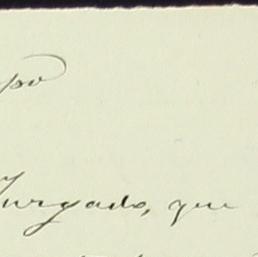 po
Juzgado, que